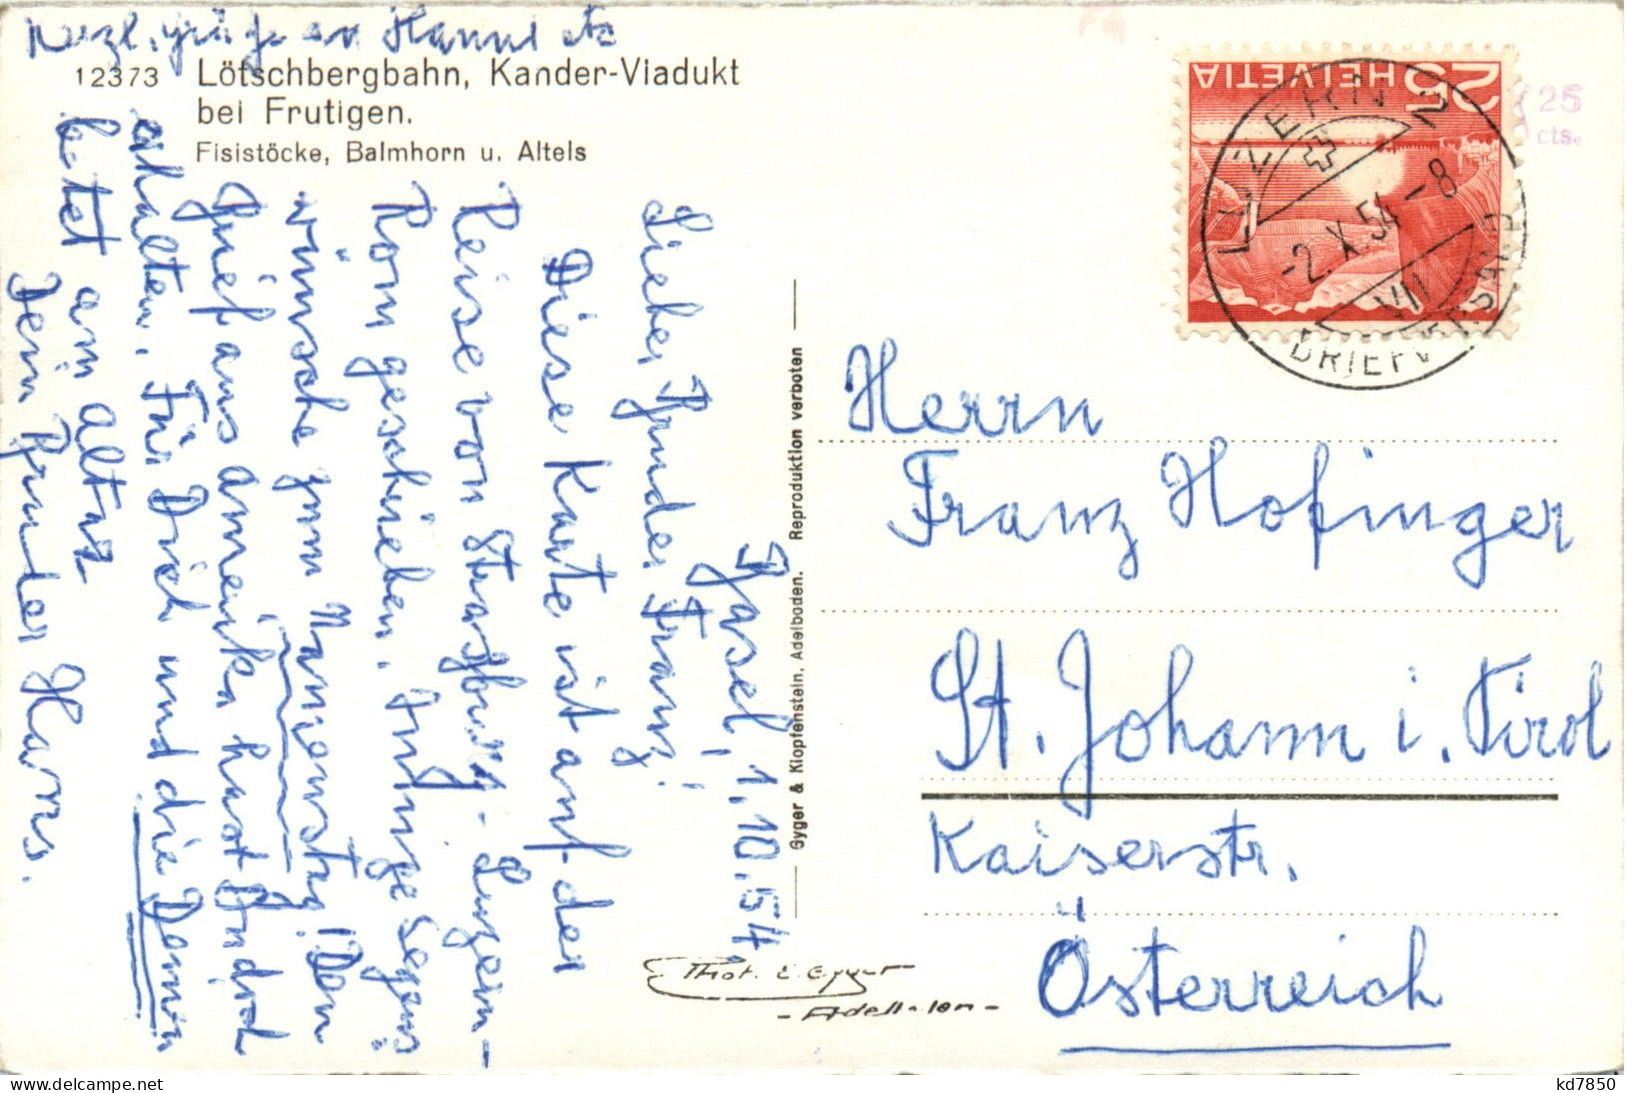 Herzl. Grüße an Hanni etc
12373 Lötschbergbahn, Kander-Viadukt
bei Frutigen.
Fisistöcke, Balmhorn u. Altels
Basel, 1.10.54
Lieber Bruder Franz!
Diese Karte ist auf der
Reise von Strassburg - Luzern -
Rom geschrieben. Innige Segens
wünsche zum Namenstag! Den
Brief aus Amerika hast Du doch
erhalten. Für Dich und die Deinen
betet am Altar
Dein Bruder Hans.
Gyger & Klopfenstein, Adelboden. Reproduktion verboten
Phot. E. Gyger
- Adelboden -
HELVETIA 25
LUZERN 2
-2.X.54-8
VII
BRIEFVERSAND
25
cts.
Herrn
Franz Hofinger
St. Johann i. Tirol
Kaiserstr.
Österreich
kd7850